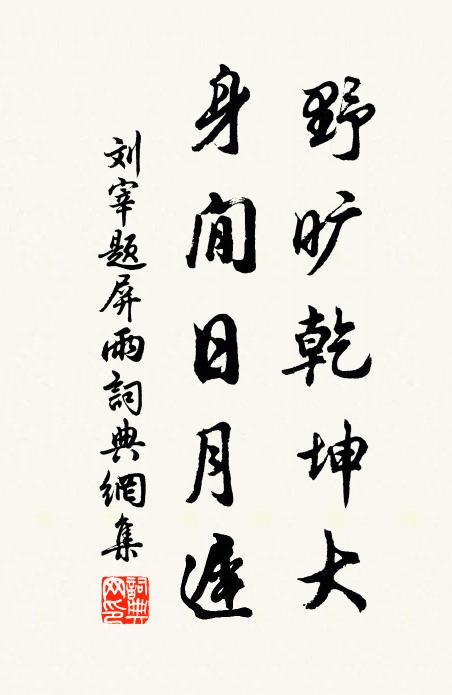 野旷乾坤大
身间日月遲
刘宰题屏雨詞典網集
詞典網印